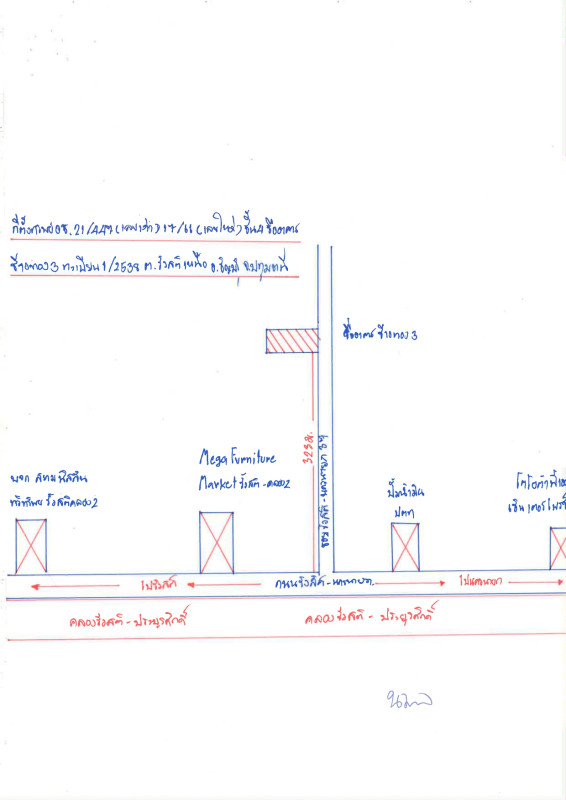 ที่ตั้งทรัพย์ อช. 21/447 (เลขเก่า) 17/66 (เลขใหม่) ชั้น 4 ชื่ออาคาร
ช้างทอง 3 ทะเบียน 1/2538 ต.รังสิต เหนือ อ.ธัญบุรี จ.ปทุมธานี
ชื่ออาคาร ช้างทอง 3
325 ม.
ซอยรังสิต-นครนายก
Mega Furniture
Market รังสิต-คลอง 2
รังสิตคลอง 2
ปั๊มน้ำมัน
ปตท
โตโยต้า
ไปรังสิต
ถนนรังสิต-นครนายก
ไปนครนายก
คลองรังสิต-ประยูรศักดิ์
คลองรังสิต-ประยูรศักดิ์